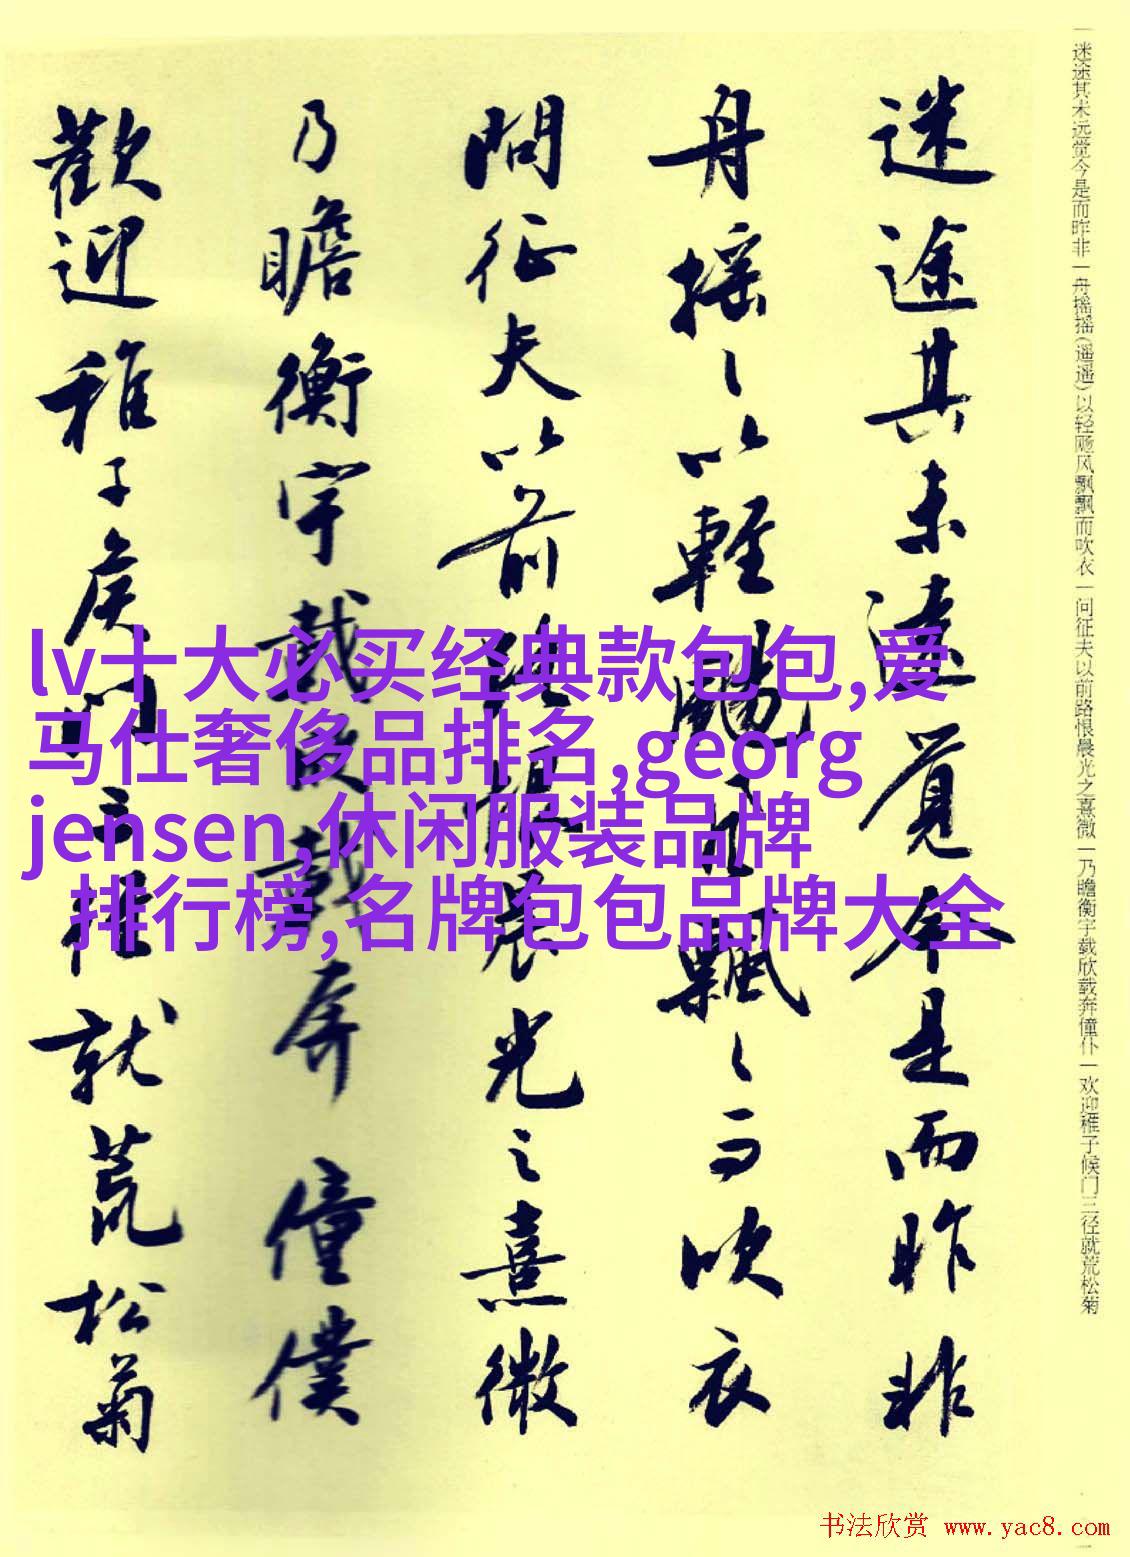 迷途其未远觉今是而昨非一舟摇摇(遥遥)以轻飏风飘飘而吹衣一问征夫以前路恨晨光之熹微一乃瞻衡宇载欣载奔僮仆一欢迎稚子候门三径就荒松菊
迷途其未遠覺今是而昨非
舟摇〻以輕颺風飄〻而吹衣
問征夫以前路恨晨光之熹微
乃瞻衡宇載欣載奔僮僕
歡迎稚子候門三徑就荒松菊
lv十大必买经典款包包,爱
马仕奢侈品排名,georg
jensen,休闲服装品牌
排行榜,名牌包包品牌大全
书法欣赏 www.yac8.com